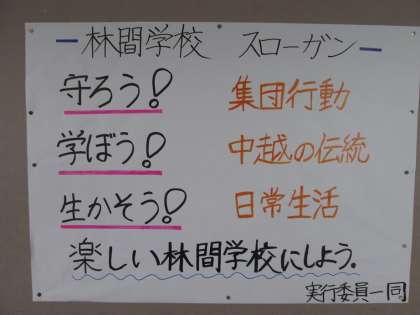 ー林間学校 スローガンー
守ろう! 集団行動
学ぼう! 中越の伝統
生かそう! 日常生活
楽しい林間学校にしよう.
実行委員一同